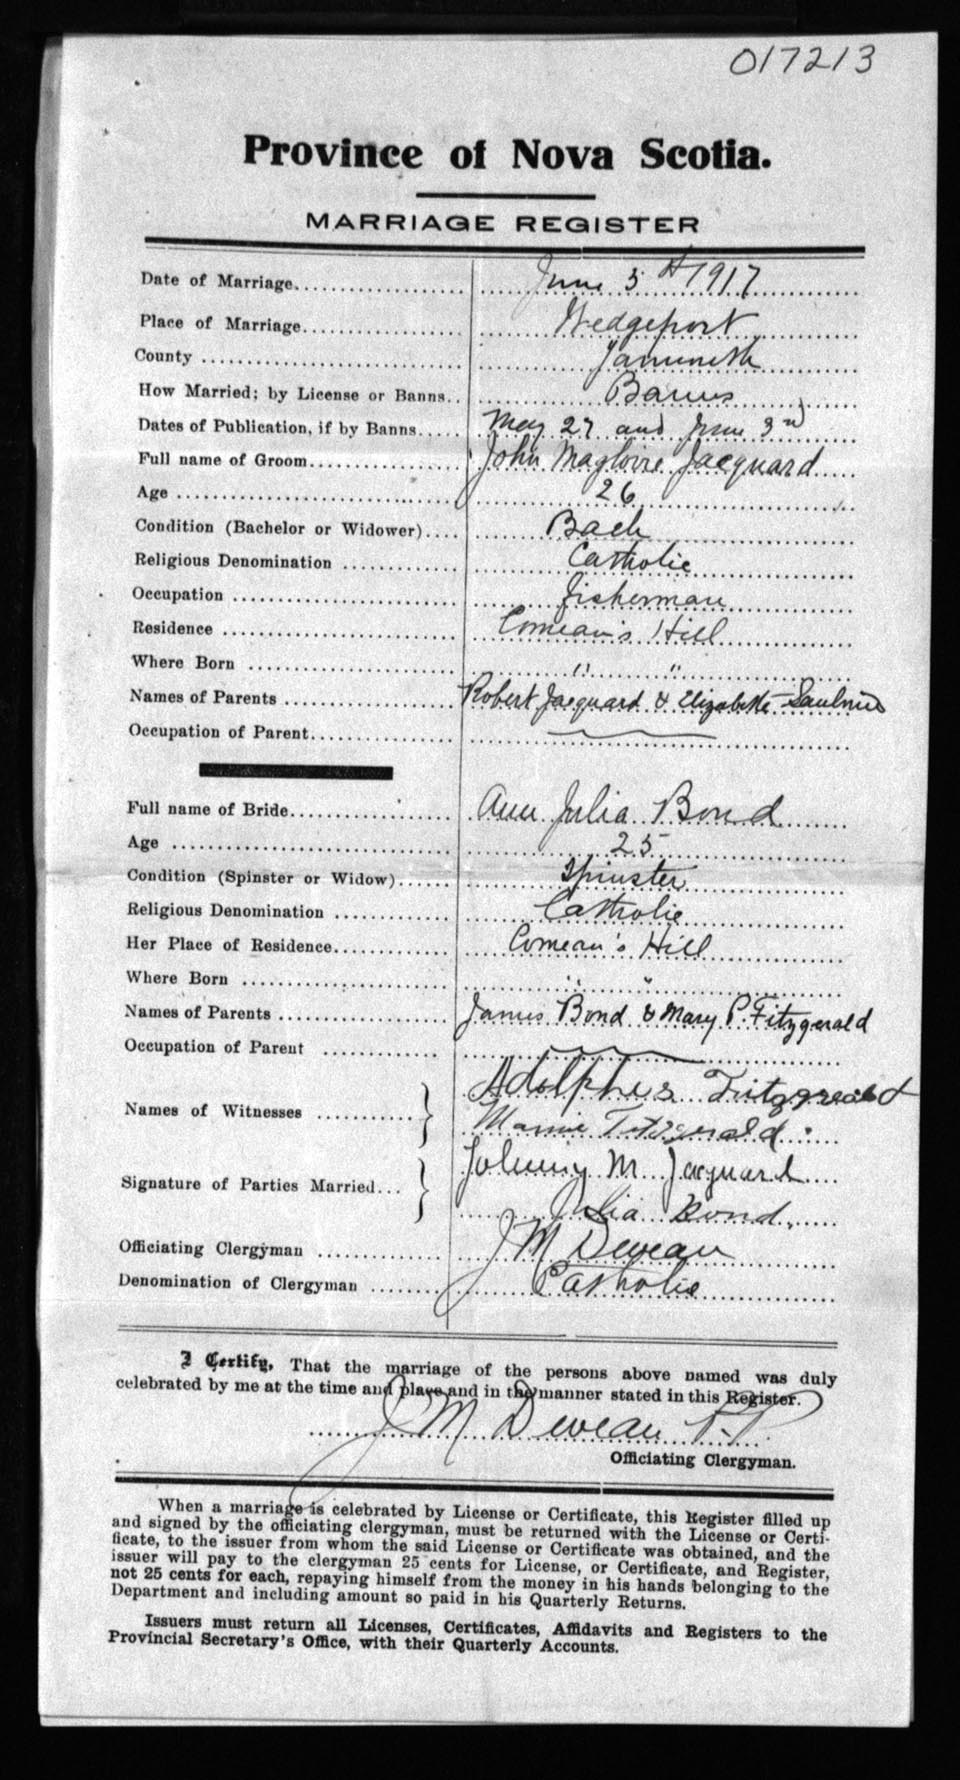 017213
Province of Nova Scotia.
MARRIAGE REGISTER
Date of Marriage June 5th 1917
Place of Marriage Wedgeport
County Yarmouth
How Married; by License or Banns Banns
Dates of Publication, if by Banns May 27 and June 3rd
Full name of Groom John Magloire Jacquard
Age 26
Condition (Bachelor or Widower) Bach
Religious Denomination Catholic
Occupation fisherman
Residence Comeau's Hill
Where Born " "
Names of Parents Robert Jacquard & Elizabeth Saulnier
Occupation of Parent
Full name of Bride Ann Julia Bond
Age 25
Condition (Spinster or Widow) Spinster
Religious Denomination Catholic
Her Place of Residence Comeau's Hill
Where Born " "
Names of Parents James Bond & Mary P. Fitzgerald
Occupation of Parent
Adolphus Fitzgerald
Names of Witnesses
Mamie Fitzgerald
Johnny M. Jacquard
Signature of Parties Married
Julia Bond
Officiating Clergyman J M Deveau
Denomination of Clergyman Catholic
I Certify, That the marriage of the persons above named was duly
celebrated by me at the time and place and in the manner stated in this Register.
J M Deveau P.P.
Officiating Clergyman.
When a marriage is celebrated by License or Certificate, this Register filled up
and signed by the officiating clergyman, must be returned with the License or Certi-
ficate, to the issuer from whom the said License or Certificate was obtained, and the
issuer will pay to the clergyman 25 cents for License, or Certificate, and Register,
not 25 cents for each, repaying himself from the money in his hands belonging to the
Department and including amount so paid in his Quarterly Returns.
Issuers must return all Licenses, Certificates, Affidavits and Registers to the
Provincial Secretary's Office, with their Quarterly Accounts.